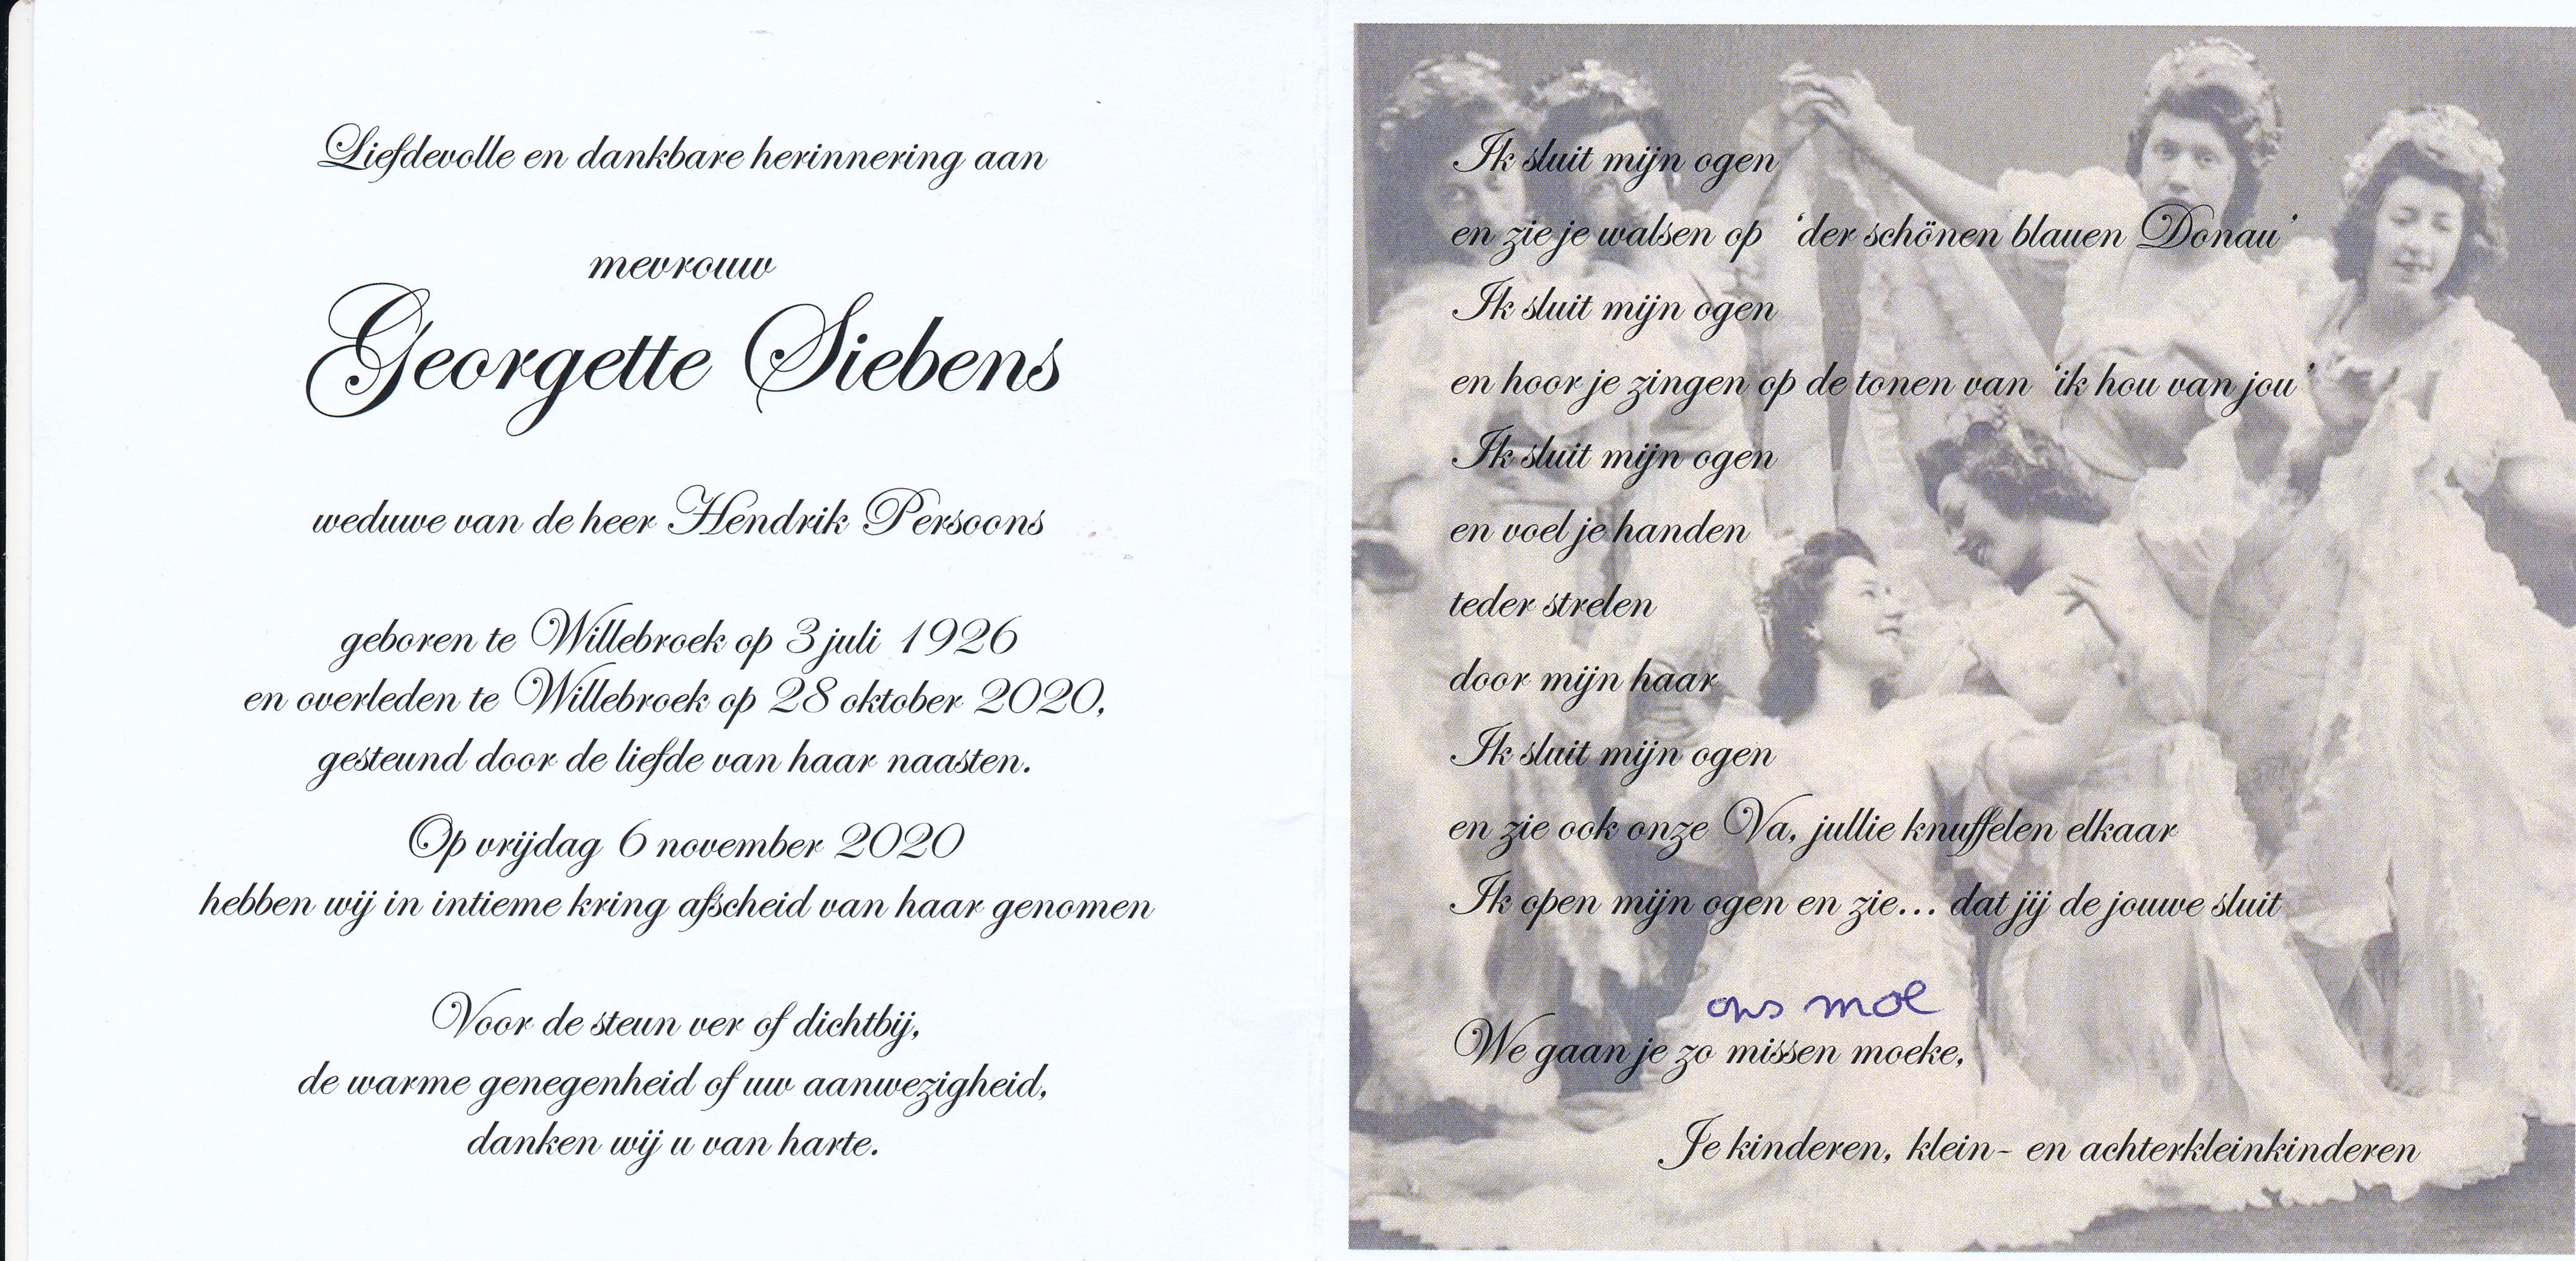 Liefdevolle en dankbare herinnering aan
mevrouw
Georgette Siebens
weduwe van de heer Hendrik Persoons
geboren te Willebroek op 3 juli 1926
en overleden te Willebroek op 28 oktober 2020,
gesteund door de liefde van haar naasten.
Op vrijdag 6 november 2020
hebben wij in intieme kring afscheid van haar genomen
Voor de steun ver of dichtbij,
de warme genegenheid of uw aanwezigheid,
danken wij u van harte.
Ik sluit mijn ogen
en zie je walsen op 'der schönen blauen Donau'
Ik sluit mijn ogen
en hoor je zingen op de tonen van 'ik hou van jou'
Ik sluit mijn ogen
en voel je handen
teder strelen
door mijn haar
Ik sluit mijn ogen
en zie ook onze Va, jullie knuffelen elkaar
Ik open mijn ogen en zie... dat jij de jouwe sluit
ons moe
We gaan je zo missen moeke,
Je kinderen, klein- en achterkleinkinderen